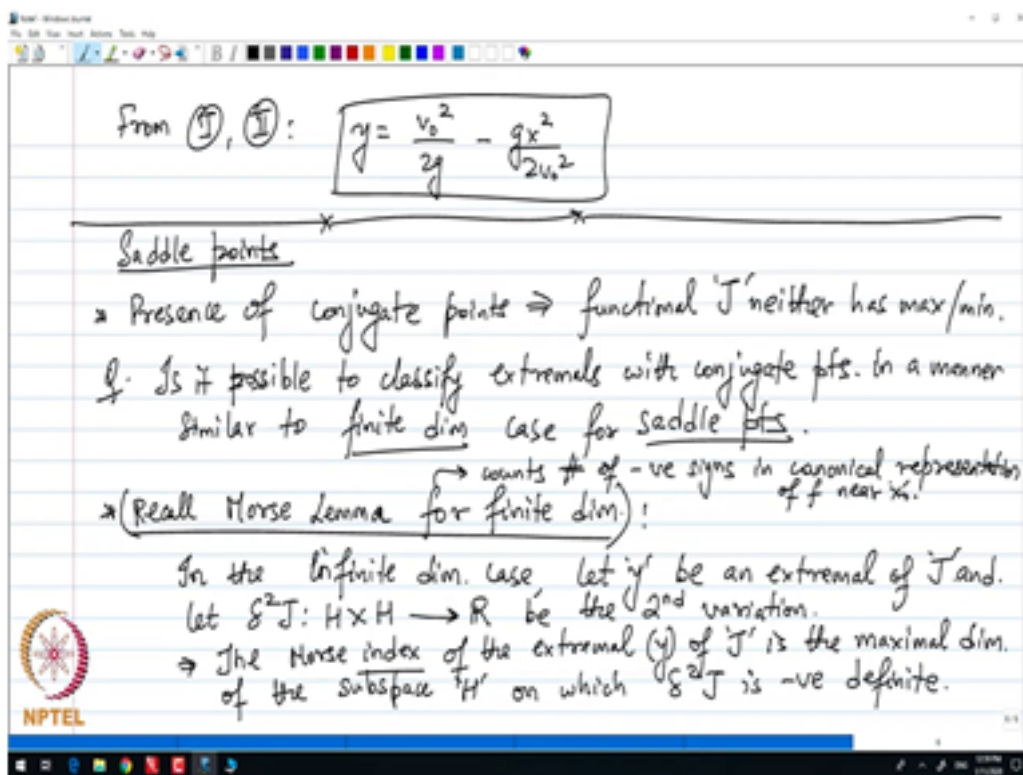 From Ⓘ, Ⓘ Ⓘ: y = v₀²/2g - gx²/2v₀²
Saddle points
* Presence of conjugate points ⇒ functional 'J' neither has max/min.
Q. Is it possible to classify extremals with conjugate pts. in a manner
similar to finite dim case for saddle pts.
→ counts # of -ve signs in canonical representation
of f near
* (Recall Morse Lemma for finite dim.):
In the infinite dim. case, let 'y' be an extremal of 'J' and.
let δ²J: H×H → R be the 2nd variation.
⇒ The Morse index of the extremal (y) of 'J' is the maximal dim.
of the subspace 'H' on which δ²J is -ve definite.
NPTEL